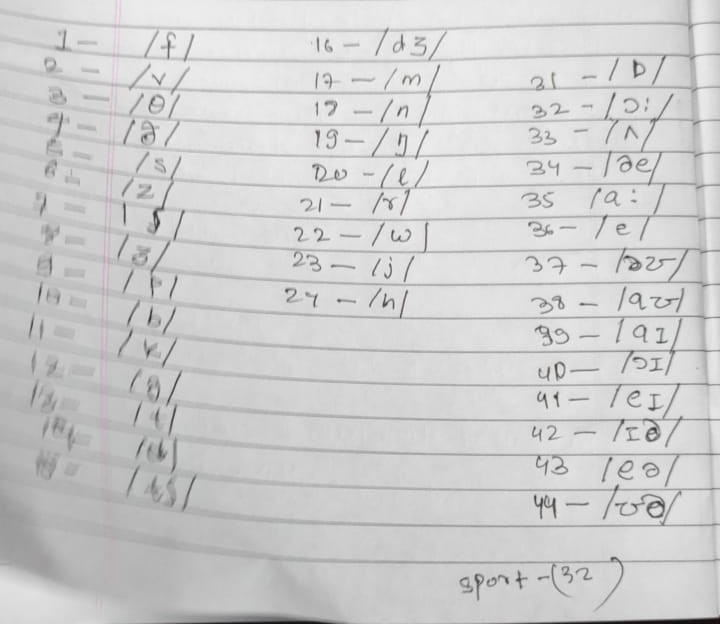 1 - /f/
2 - /v/
3 - /θ/
/ð/
/s/
/z/
/ʃ/
/ʒ/
/p/
10 - /b/
11 - /k/
/g/
/t/
/d/
/tʃ/
16 - /dʒ/
17 - /m/
18 - /n/
19 - /ŋ/
20 - /l/
21 - /r/
22 - /w/
23 - /j/
24 - /h/
31 - /ɒ/
32 - /ɔ:/
33 - /ʌ/
34 - /əe/
35 /a:/
36 - /e/
37 - /əʊ/
38 - /aʊ/
39 - /aɪ/
40 - /ɔɪ/
41 - /eɪ/
42 - /ɪə/
43 /eə/
44 - /ʊə/
sport - (32)